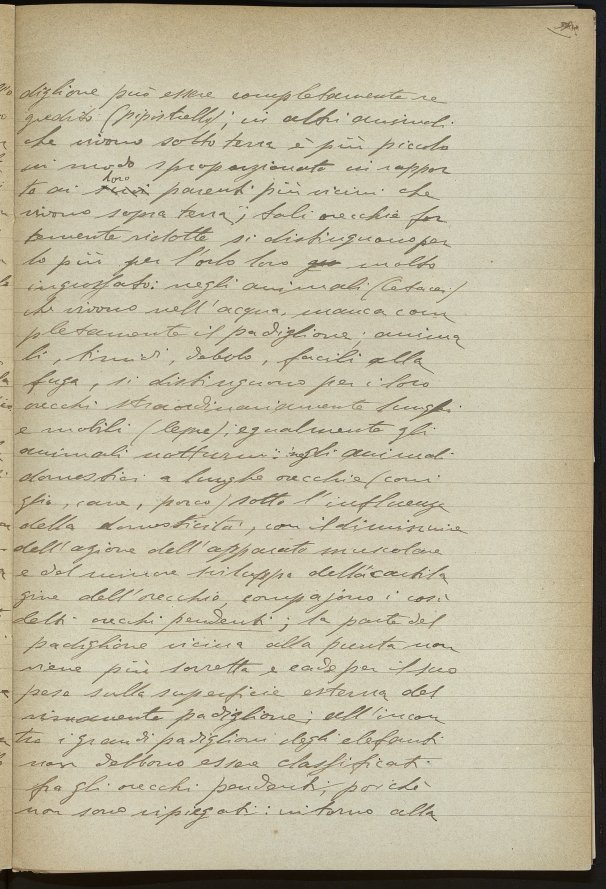 diglione può essere completamente re
gredito (pipistrelli); in altri animali
che vivono sotto terra è più piccolo
in modo sproporzionato in rappor
to ai loro parenti più vicini che
vivono sopra terra; tali orecchie for
temente ridotte si distinguono per
lo più per l'orlo loro molto
ingrossato: negli animali (Cetacei)
che vivono nell'acqua, manca com
pletamente il padiglione; anima
li, timidi, deboli, facili alla
fuga, si distinguono per i loro
orecchi straordinariamente lunghi
e mobili (lepre); egualmente gli
animali notturni: negli animali
domestici a lunghe orecchie (coni
glio, cane, porco) sotto l'influenza
della domesticità, con il diminuire
dell'azione dell'apparato muscolare
e del minore sviluppo della cartila
gine dell'orecchio, compajono i così
detti orecchi pendenti; la parte del
padiglione vicina alla punta non
viene più sorretta e cade per il suo
peso sulla superficie esterna del
rimanente padiglione; all'incon
tro i grandi padiglioni degli elefanti
non debbono essere classificati
fra gli orecchi pendenti, poichè
non sono ripiegati: intorno alla